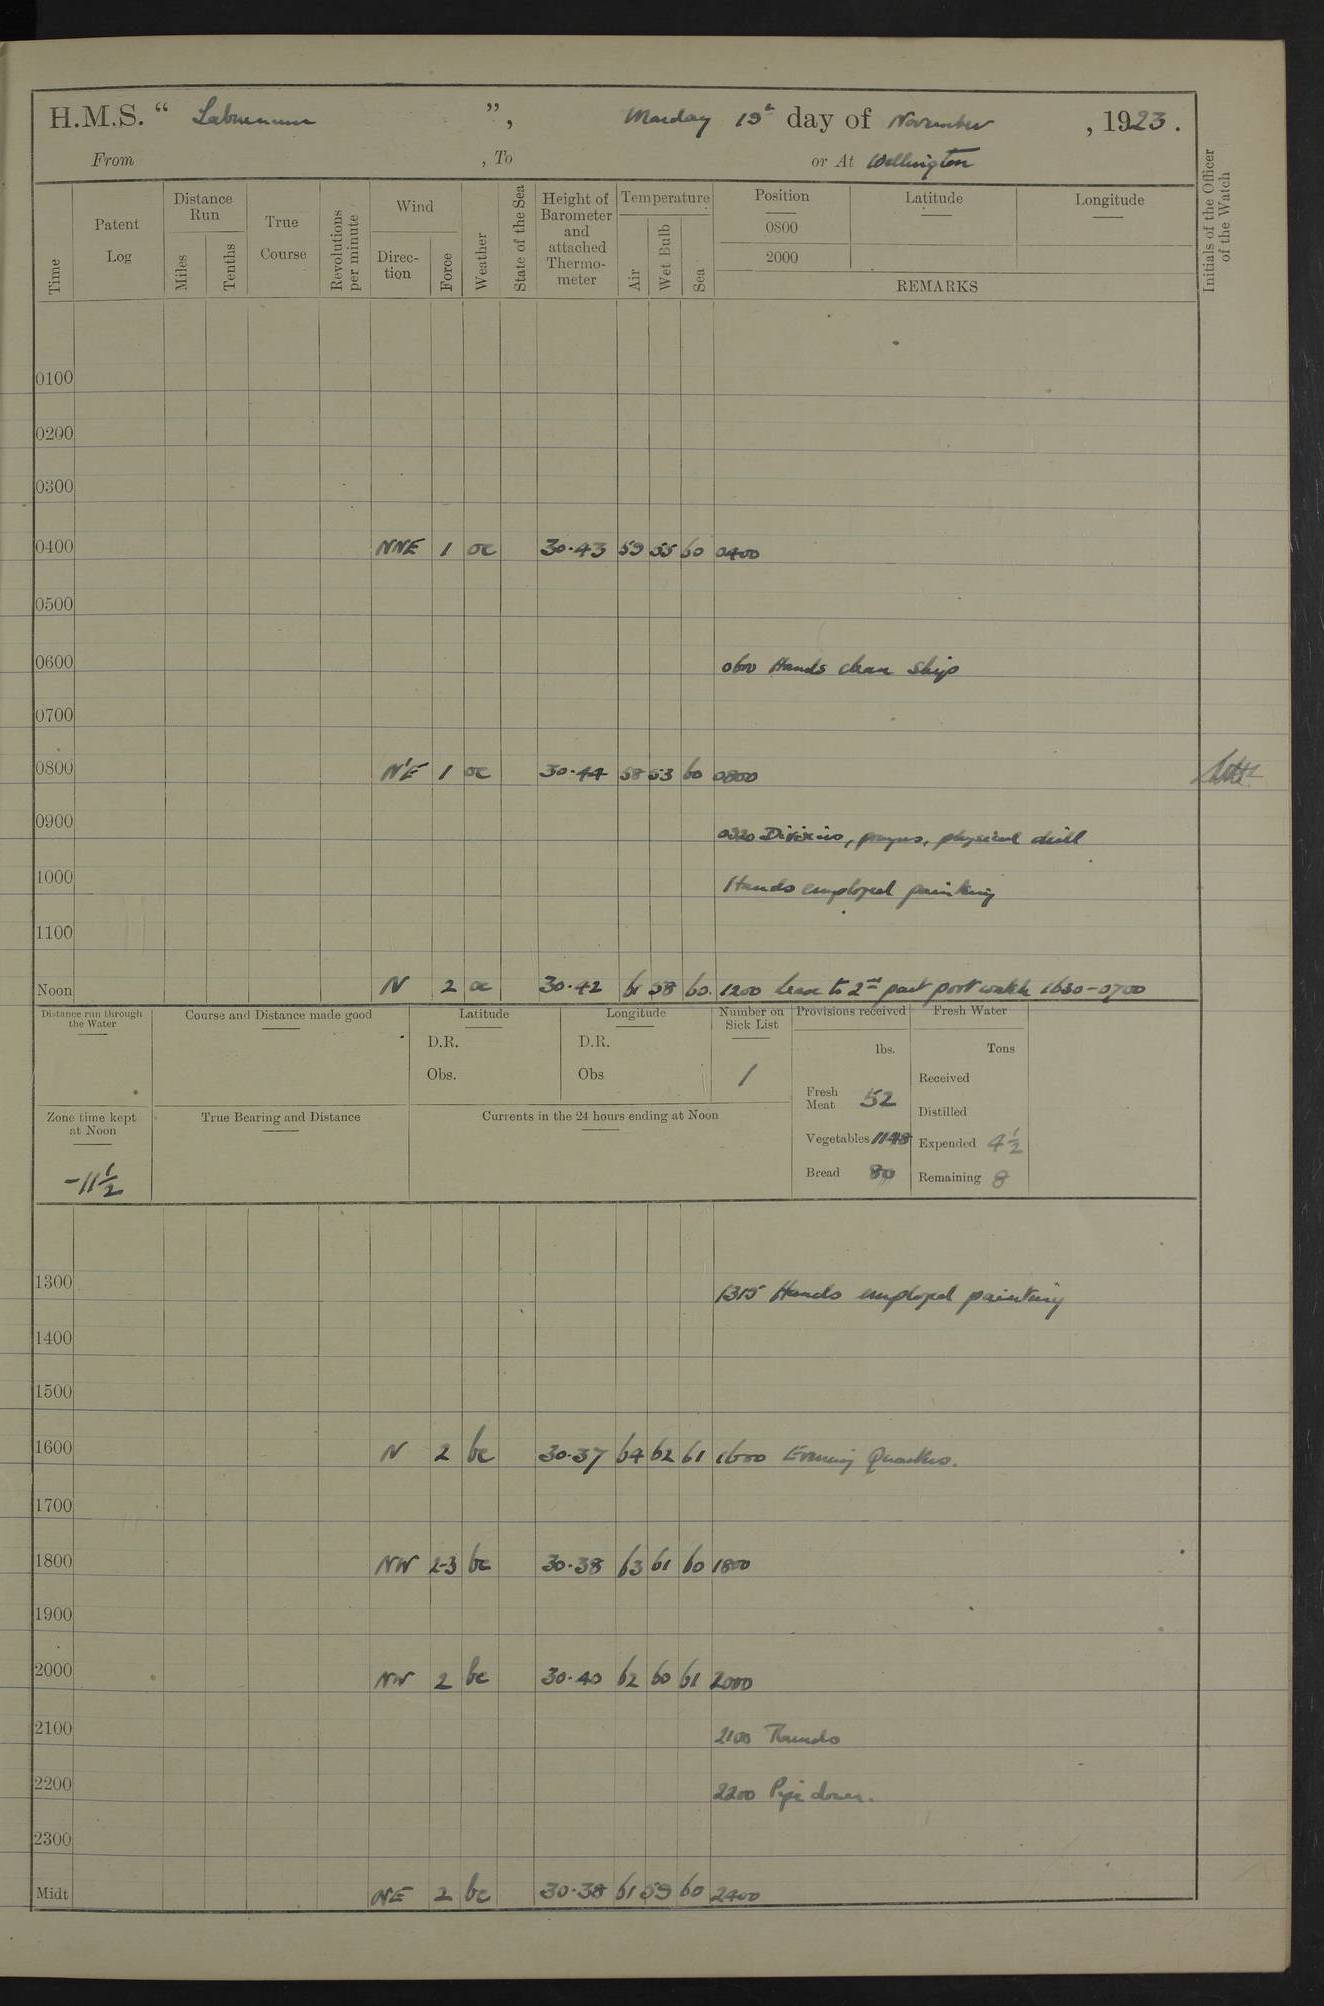 H.M.S. “ Laburnum ”, Monday 19th day of November, 1923.
From , To or At Wellington
Time
Patent Log
Distance Run
Miles
Tenths
True Course
Revolutions per minute
Wind
Direction
Force
Weather
State of the Sea
Height of Barometer and attached Thermometer
Temperature
Air
Wet Bulb
Sea
Position
0800
2000
Latitude
Longitude
REMARKS
Initials of the Officer of the Watch
0100
0200
0300
0400 NNE 1 oc 30.43 59 55 60 0400
0500
0600 0600 Hands clean ship
0700
0800 N'E 1 oc 30.44 58 53 60 0800
0900 0920 Divisions, prayers, physical drill
1000 Hands employed painting
1100
Noon N 2 oc 30.42 61 58 60. 1200 Leave to 2nd part port watch 1630-0700
Distance run through the Water
Course and Distance made good
Latitude
D.R.
Obs.
Longitude
D.R.
Obs
Number on Sick List
1
Provisions received
lbs.
Fresh Meat 52
Vegetables 1148
Bread 80
Fresh Water
Tons
Received
Distilled
Expended 4½
Remaining 8
Zone time kept at Noon
-11½
True Bearing and Distance
Currents in the 24 hours ending at Noon
1300 1315 Hands employed painting
1400
1500
1600 N 2 bc 30.37 64 62 61 1600 Evening Quarters.
1700
1800 NW 2-3 bc 30.38 63 61 60 1800
1900
2000 NW 2 bc 30.40 62 60 61 2000
2100 2100 Rounds
2200 2200 Pipe down.
2300
Midt NE 2 bc 30.38 61 59 60 2400